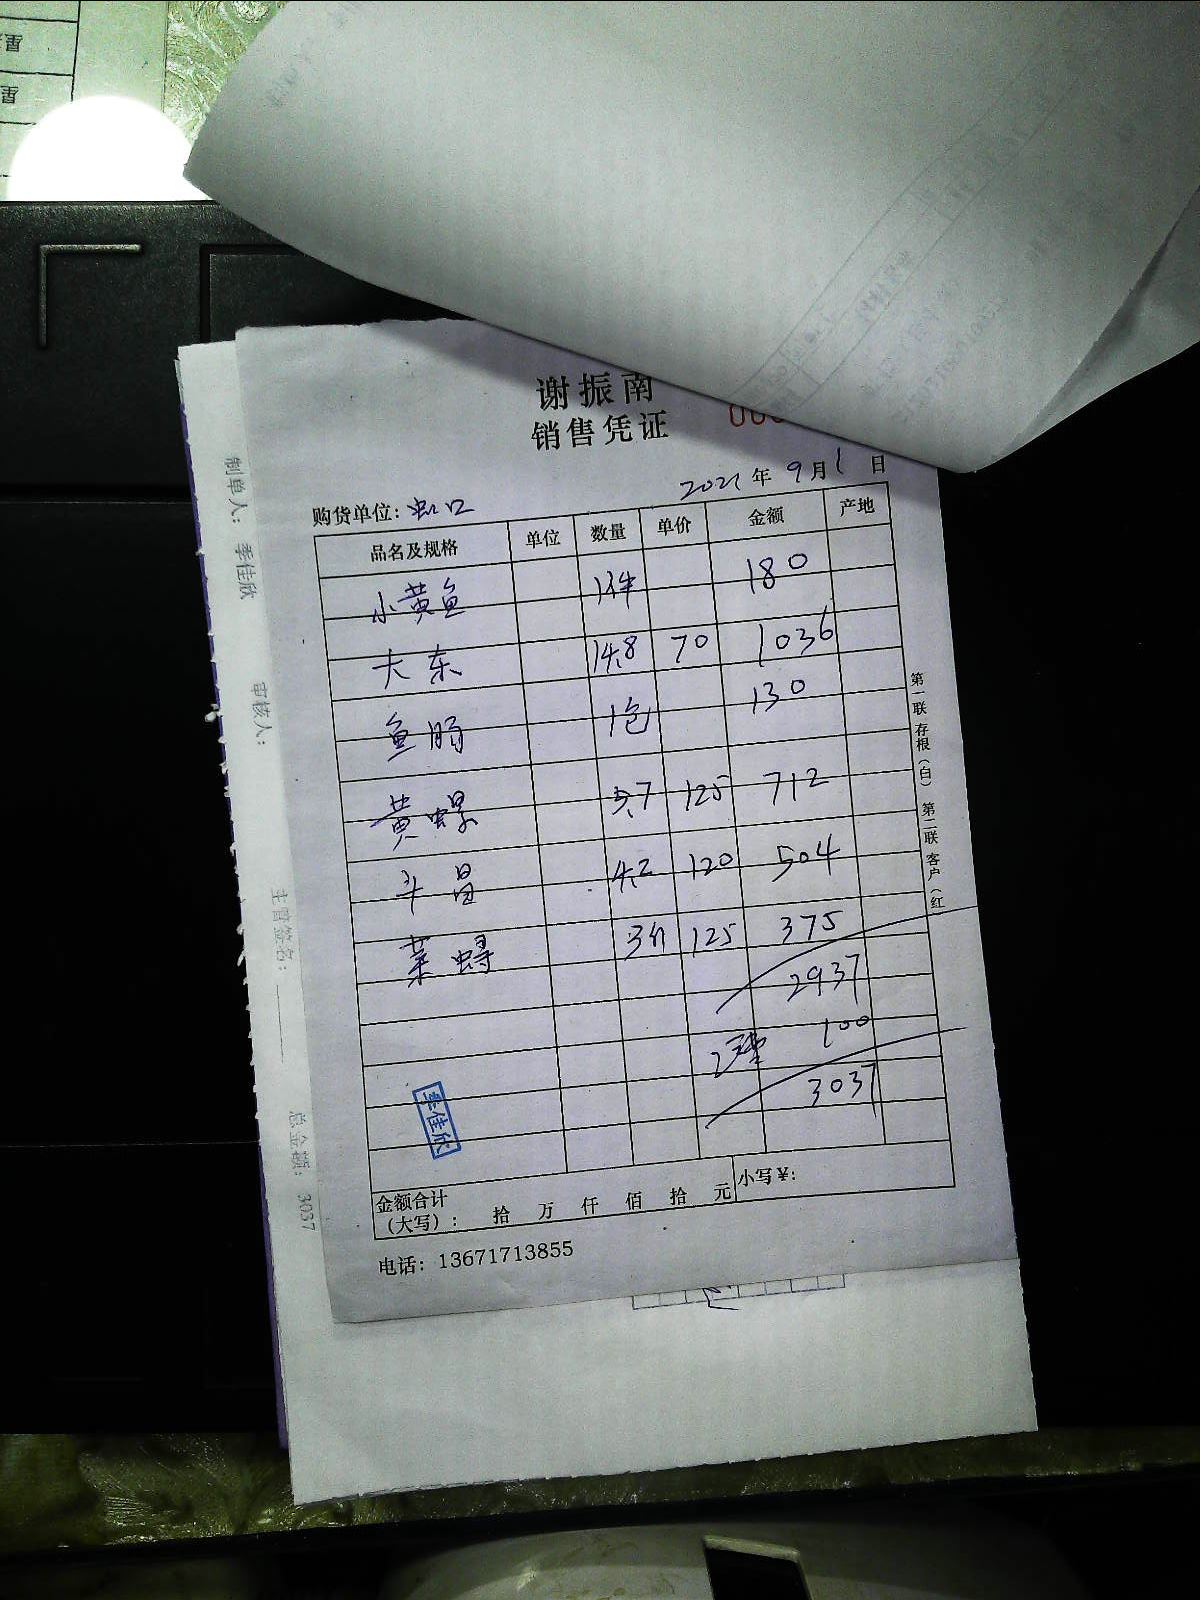 谢振南
销售凭证
2021年9月1日
购货单位：虹口
品名及规格 单位 数量 单价 金额 产地
小黄鱼 1件 180
大东 14.8 70 1036
鱼肠 1包 130
黄螺 5.7 125 712
半昌 4.2 120 504
菜蟳 3斤 125 375
2937
100
3037
李佳欣
金额合计
（大写）： 拾 万 仟 佰 拾 元 小写￥：
电话：13671713855
第一联 存根（白） 第二联 客户（红
制单人： 李佳欣 审核人： 主管签名： 总金额： 3037